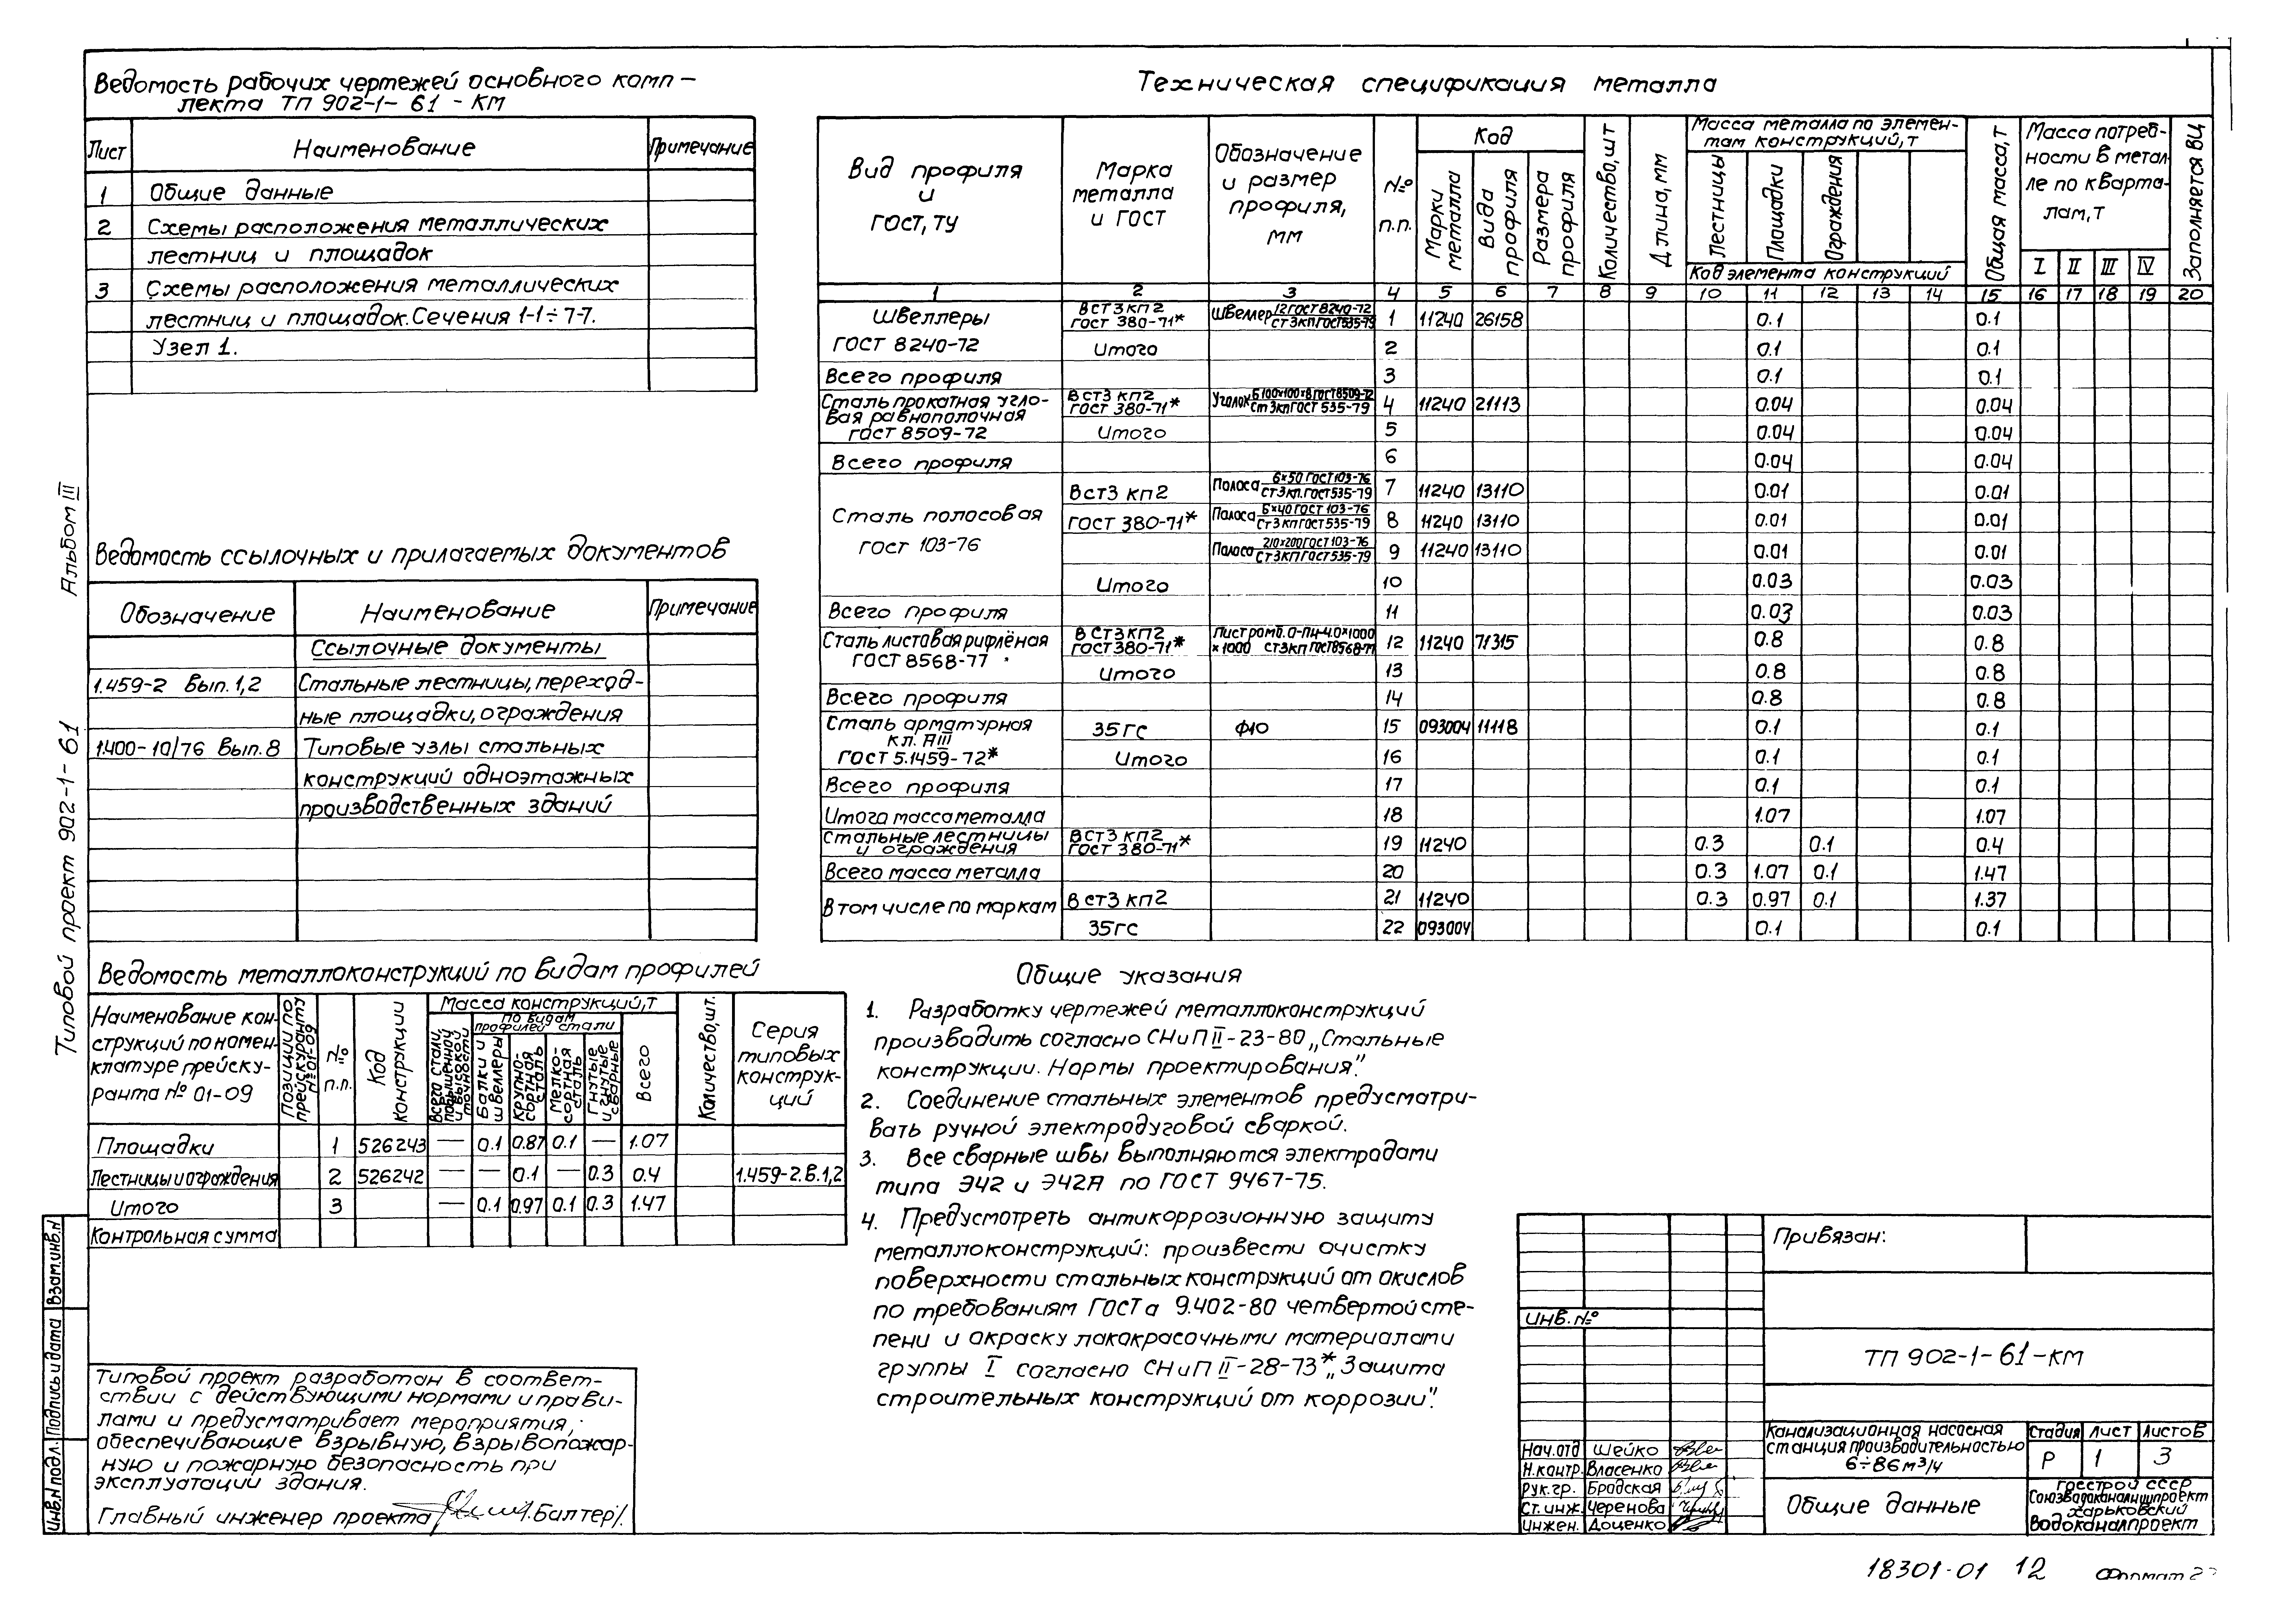 Ведомость рабочих чертежей основного комп-
лекта ТП 902-1-61-КМ
Лист Наименование Примечание
1 Общие данные
2 Схемы расположения металлических
лестниц и площадок
3 Схемы расположения металлических
лестниц и площадок. Сечения 1-1÷7-7.
Узел 1.
Ведомость ссылочных и прилагаемых документов
Обозначение Наименование Примечание
Ссылочные документы
1.459-2 Вып.1,2 Стальные лестницы, переход-
ные площадки, ограждения
1.400-10/76 Вып.8 Типовые узлы стальных
конструкций одноэтажных
производственных зданий
Ведомость металлоконструкций по видам профилей
Наименование кон-
струкций по номен-
клатуре прейску-
ранта № 01-09
Позиции по прейскуранту № 01-09
№ п.п.
Код конструкции
Масса конструкций, т
Всего стали повышенной и высокой точности
По видам профилей стали
Балки и швеллеры
Крупно-сортная сталь
Мелко-сортная сталь
Гнутые и гнутые сварные
Всего
Количество, шт.
Серия типовых конструк-ций
Площадки 1 526243 — 0.1 0.87 0.1 — 1.07
Лестницы и ограждения 2 526242 — — 0.1 — 0.3 0.4 1.459-2.В.1,2
Итого 3 — 0.1 0.97 0.1 0.3 1.47
Контрольная сумма
Типовой проект разработан в соответ-
ствии с действующими нормами и прави-
лами и предусматривает мероприятия,
обеспечивающие взрывную, взрывопожар-
ную и пожарную безопасность при
эксплуатации здания.
Главный инженер проекта Балтер/.
Техническая спецификация металла
Вид профиля и ГОСТ, ТУ
Марка металла и ГОСТ
Обозначение и размер профиля, мм
№ п.п.
Код
Марки металла
Вида профиля
Размера профиля
Количество, шт
Длина, мм
Масса металла по элемен-
там конструкций, т
Лестницы
Площадки
Ограждения
Код элемента конструкций
Общая масса, т
Масса потреб-
ности в метал-
ле по кварта-
лам, т
I II III IV
Заполняется ВЦ
1 2 3 4 5 6 7 8 9 10 11 12 13 14 15 16 17 18 19 20
Швеллеры ГОСТ 8240-72 ВСт3 кп2 ГОСТ 380-71* Швеллер 12 ГОСТ 8240-72 Ст3кп ГОСТ 535-79 1 11240 26158 0.1 0.1
Итого 2 0.1 0.1
Всего профиля 3 0.1 0.1
Сталь прокатная угло-
вая равнополочная
ГОСТ 8509-72 ВСт3 кп2 ГОСТ 380-71* Уголок Б100х100х8 ГОСТ 8509-72 Ст3кп ГОСТ 535-79 4 11240 21113 0.04 0.04
Итого 5 0.04 0.04
Всего профиля 6 0.04 0.04
Сталь полосовая ГОСТ 103-76 ВСт3 кп2 Полоса 6х50 ГОСТ 103-76 Ст3кп. ГОСТ 535-79 7 11240 13110 0.01 0.01
ГОСТ 380-71* Полоса 6х40 ГОСТ 103-76 Ст3кп ГОСТ 535-79 8 11240 13110 0.01 0.01
Полоса 210х200 ГОСТ 103-76 Ст3кп ГОСТ 535-79 9 11240 13110 0.01 0.01
Итого 10 0.03 0.03
Всего профиля 11 0.03 0.03
Сталь листовая рифлёная
ГОСТ 8568-77 ВСт3 кп2 ГОСТ 380-71* Лист ромб. О-ПН-4.0х1000 х1000 Ст3кп ГОСТ 8568-77 12 11240 71315 0.8 0.8
Итого 13 0.8 0.8
Всего профиля 14 0.8 0.8
Сталь арматурная
кл. АIII
ГОСТ 5.1459-72* 35ГС ф10 15 093004 11118 0.1 0.1
Итого 16 0.1 0.1
Всего профиля 17 0.1 0.1
Итого масса металла 18 1.07 1.07
Стальные лестницы
и ограждения ВСт3 кп2 ГОСТ 380-71* 19 11240 0.3 0.1 0.4
Всего масса металла 20 0.3 1.07 0.1 1.47
В том числе по маркам ВСт3 кп2 21 11240 0.3 0.97 0.1 1.37
35ГС 22 093004 0.1 0.1
Общие указания
1. Разработку чертежей металлоконструкций
производить согласно СНиП II-23-80 „Стальные
конструкции. Нормы проектирования".
2. Соединение стальных элементов предусматри-
вать ручной электродуговой сваркой.
3. Все сварные швы выполняются электродами
типа Э42 и Э42А по ГОСТ 9467-75.
4. Предусмотреть антикоррозионную защиту
металлоконструкций: произвести очистку
поверхности стальных конструкций от окислов
по требованиям ГОСТа 9.402-80 четвертой сте-
пени и окраску лакокрасочными материалами
группы I согласно СНиП II-28-73* „Защита
строительных конструкций от коррозии".
Привязан:
Инв. №
ТП 902-1-61-КМ
Нач.отд Шейко
Н.контр. Власенко
Рук.гр. Бродская
Ст.инж. Черенова
Инжен. Доценко
Канализационная насосная
станция производительностью
6÷86 м³/ч
Стадия Лист Листов
Р 1 3
Общие данные
Госстрой СССР
Союзводоканалниипроект
Харьковский
Водоканалпроект
Типовой проект 902-1-61 Альбом III
Инв.№ подл. Подпись и дата Взам.инв.№
18301-01 12 Формат